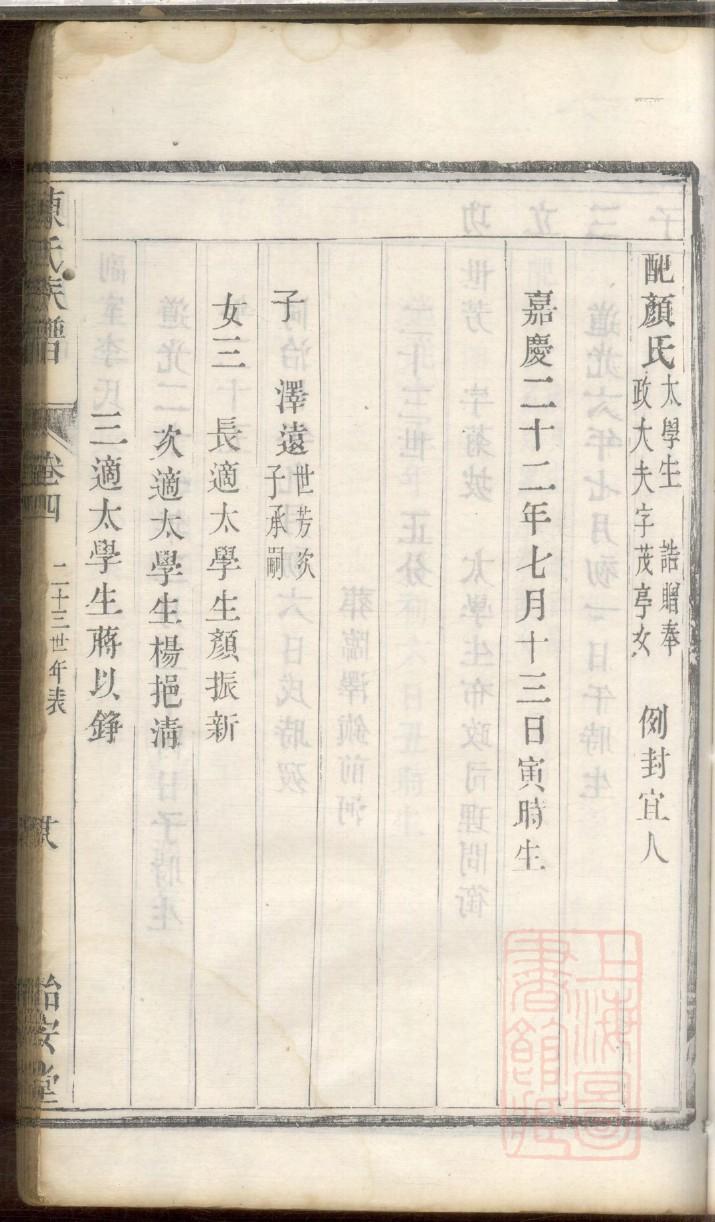 配顏氏太學生 誥贈奉政大夫字茂亭女 例封宜人
嘉慶二十二年七月十三日寅時生
子 澤遠世芳次子承嗣
女三 長適太學生顏振新
次適太學生楊挹清
三適太學生蔣以錚
陳氏族譜 卷四 二十三世年表 怡安堂
上海圖書館藏